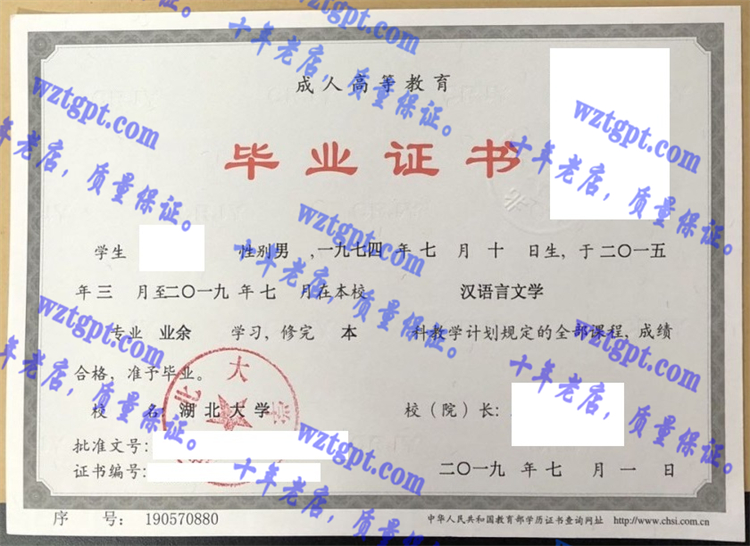 成人高等教育
毕业证书
学生 性别男 ,一九七四 年 七 月 十 日生, 于二〇一五
年 三 月至二〇一九 年 七 月在本校 汉语言文学
专业 业余 学习, 修完 本 科教学计划规定的全部课程、成绩
合格, 准予毕业。
校 名 湖北大学 校(院)长:
批准文号:
证书编号: 二〇一九 年 七 月 一 日
序 号: 190570880 中华人民共和国教育部学历证书查询网址 http://www.chsi.com.cn
北大学
wztgpt.com
十年老店,质量保证。
wztgpt.com
十年老店,质量保证。
wztgpt.com
十年老店,质量保证。
wztgpt.com
十年老店,质量保证。
wztgpt.com
十年老店,质量保证。
wztgpt.com
十年老店,质量保证。